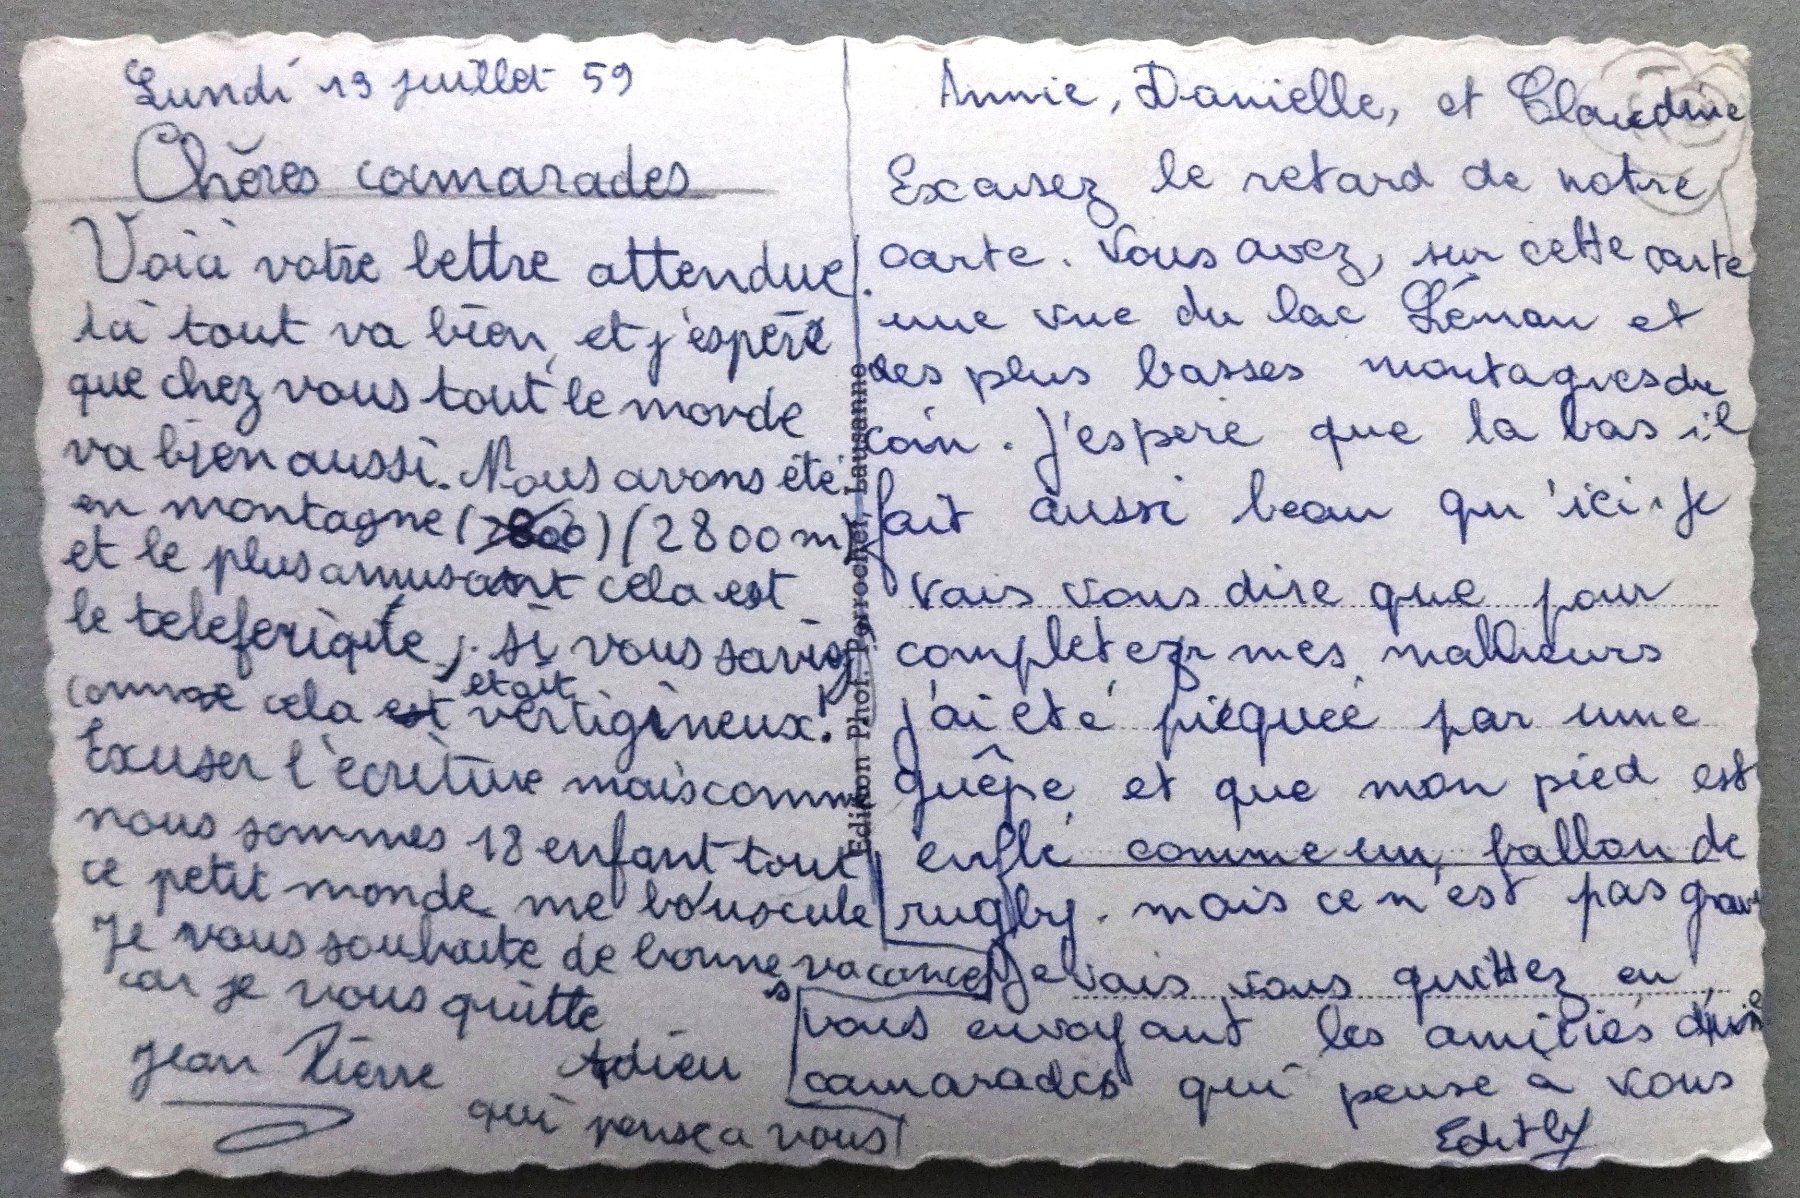 Lundi 13 juillet 59
Chères camarades
Voici votre lettre attendue.
Ici tout va bien, et j'espère
que chez vous tout le monde
va bien aussi. Nous avons été
en montagne (2800) (2800 m)
et le plus amusant cela est
le teleferique, si vous saviez
comme cela est était vertigineux!
Exuser l'écriture mais comme
nous sommes 18 enfant tout
ce petit monde me bouscule
Je vous souhaite de bonnes vacances
car je vous quitte
Jean Pierre Adieu
qui pense a vous
Edition Phot. Perrochet Lausanne
Annie, Danielle, et Claudine
Excusez le retard de notre
carte. Vous avez, sur cette carte
une vue du lac Léman et
des plus basses montagnes du
coin. J'espere que la bas il
fait aussi beau qu'ici. Je
vais vous dire que pour
completer mes malheurs
j'ai été piéquée par une
guêpe et que mon pied est
enflé comme un ballon de
rugby. mais ce n'est pas grave
Je vais vous quittez en
vous envoyant les amitiés d'une
camarades qui pense a vous
Edithy